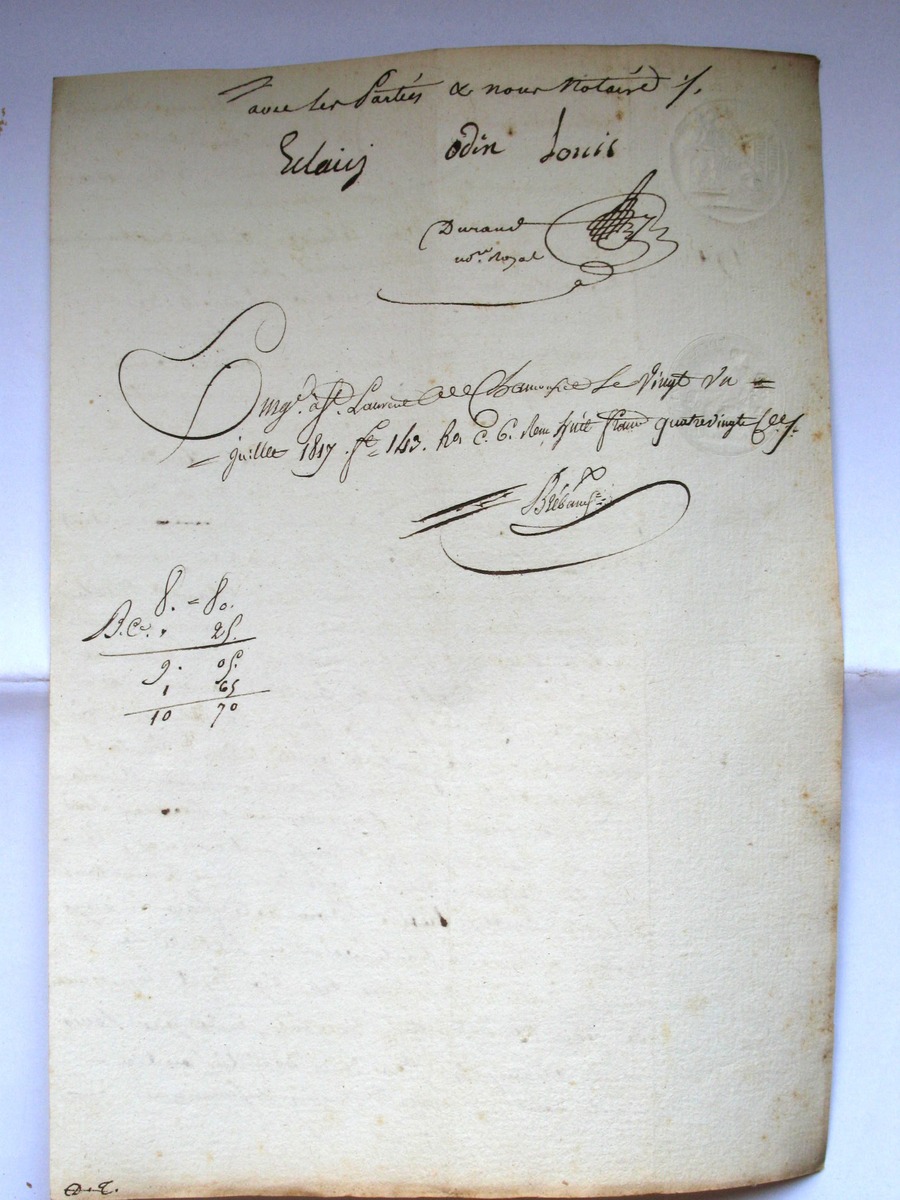 avec les Parties & nous Notaire ./.
Eclair odin Louis
Durand
no.re Royal
Enrg.é à St. Laurent de Chamousset le Vingt un =
= juillet 1817. f.o 143. Ro. C. 6. Reçu huit francs quatre vingt C.es ./.
8. = 80.
B.Ce. " 25.
9. 05.
1 65
10 70